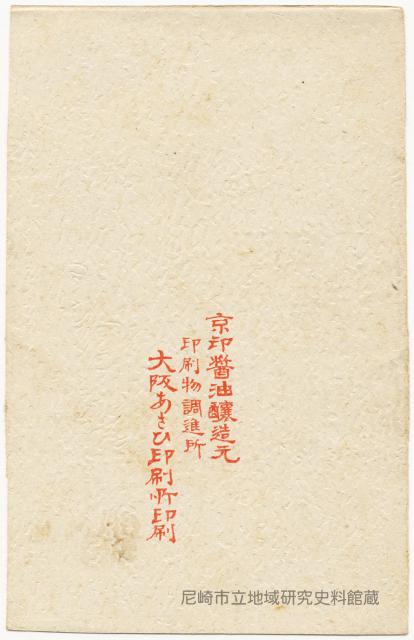 京印醤油醸造元
印刷物調進所
大阪あさひ印刷所印刷
尼崎市立地域研究史料館蔵